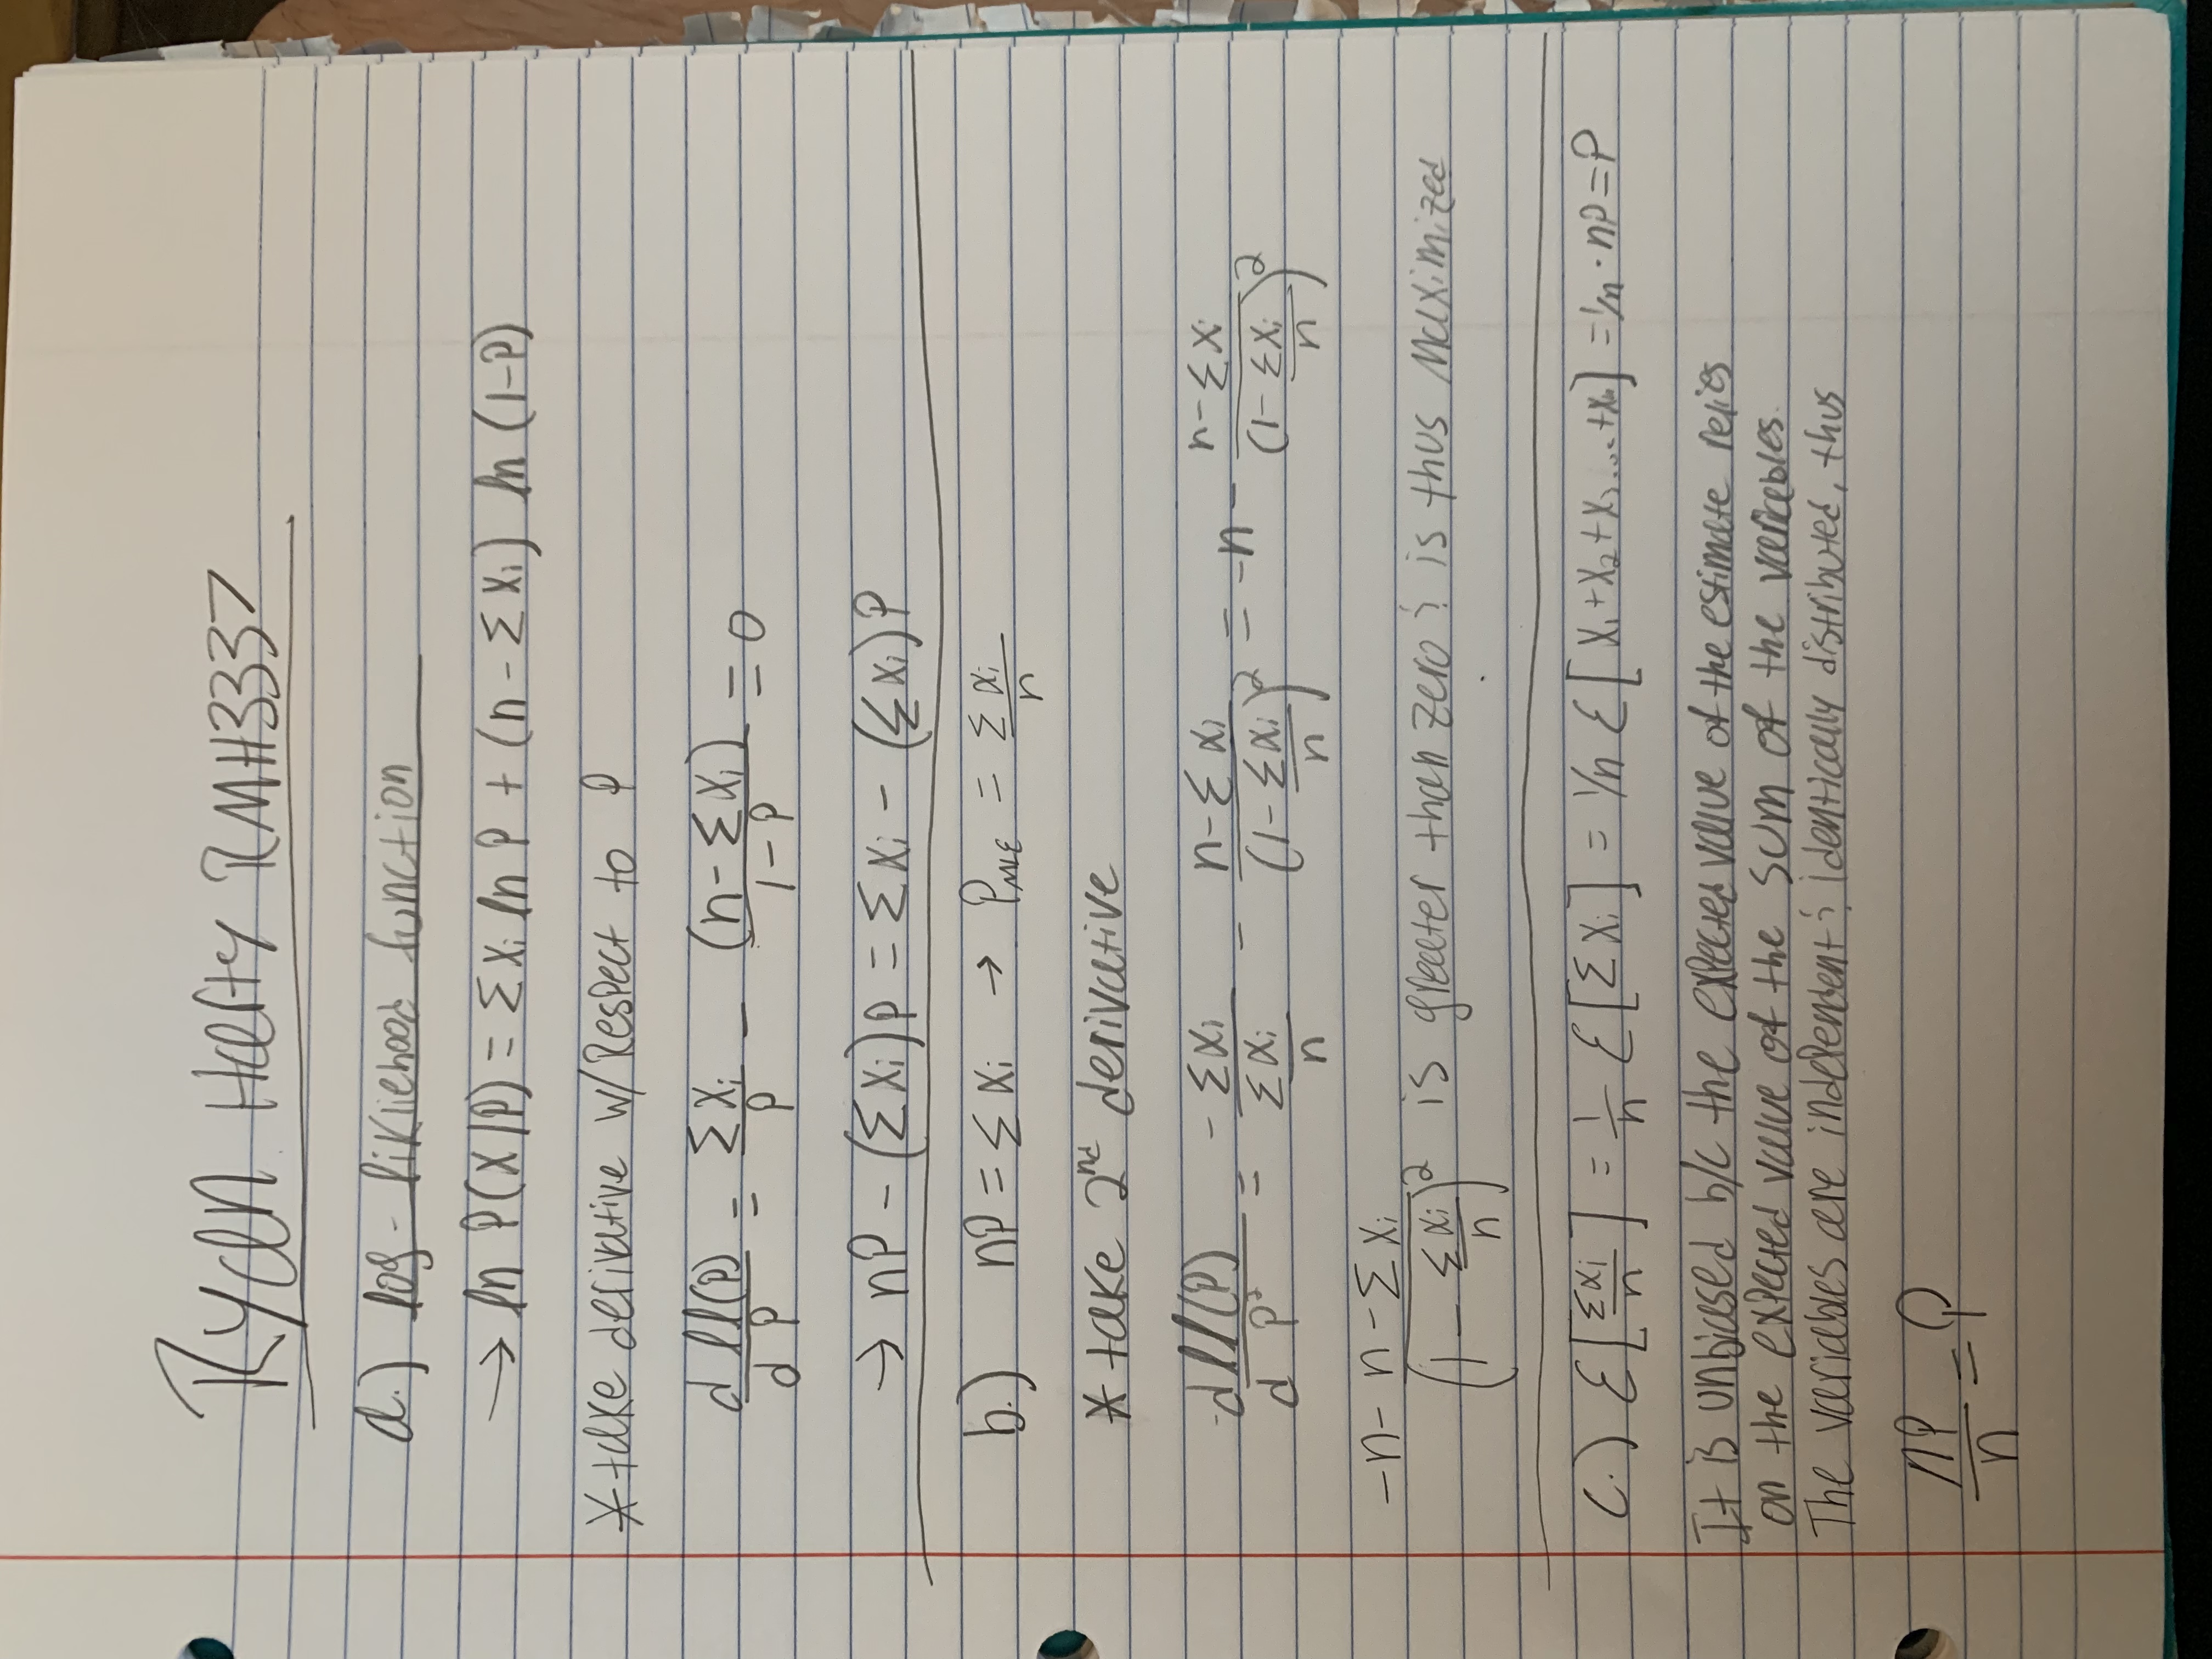 Ryan Hafty RMH3337
a.) log-likliehood function
→ ln P(X|P) = Σxi ln P + (n - Σxi) ln (1-P)
* take derivative w/Respect to P
d ll(P)/d P = Σxi/P - (n-Σxi)/1-P = 0
→ nP - (Σxi)P = Σxi - (Σxi)P
b.) nP = Σxi → P_MLE = Σxi/n
* take 2nd derivative
-d ll(P)/d P² = -Σxi/(Σxi/n) - n-Σxi/(1-Σxi/n)² = -n - n-Σxi/(1-Σxi/n)²
-n- n-Σxi/(1-Σxi/n)² is greater than zero & is thus Maximized
c.) E[Σxi/n] = 1/n E[Σxi] = 1/n E[X₁+X₂+X₃....+Xn] = 1/n · nP = P
It is unbiased b/c the expected value of the estimate relies
on the expected value of the sum of the variables.
The variables are independent & identically distributed, thus
nP/n = P